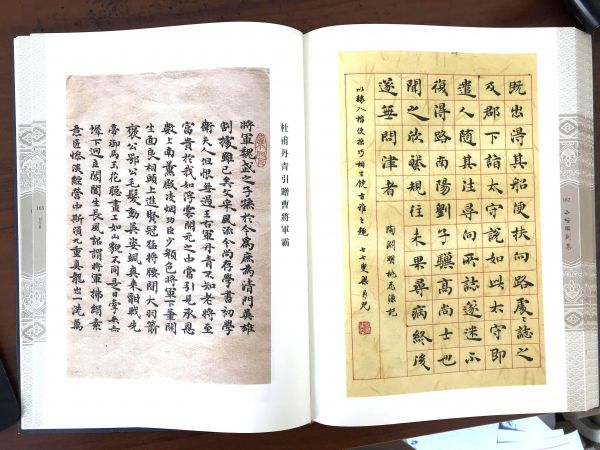 162
既出得其船便扶向路處々誌之
及郡下詣太守說如此太守即
遣人隨其往尋向所誌遂迷不
復得路南陽劉子驥高尚士也
聞之欣然規往未果尋病終後
遂無問津者
陶淵明桃花源記
以隸入楷使拙巧相生饒古雅之趣 七七叟梁
杜甫丹青引贈曹將軍霸
將軍魏武之子孫於今為庶為清門英雄
割據雖已矣文采風流今尚存學書初學
衛夫人但恨無過王右軍丹青不知老將至
富貴於我如浮雲開元之中常引見承恩
數上南薰殿凌烟功臣少顏色將軍下筆開
生面良相頭上進賢冠猛將腰間大羽箭
褒公鄂公毛髮動英姿颯爽来酣戰先
帝御馬玉花驄畫工如山貌不同是日牽来赤
墀下迥立閶闔生長風詔謂將軍拂絹素
意匠慘淡經營中斯須九重真龍出一洗萬
163